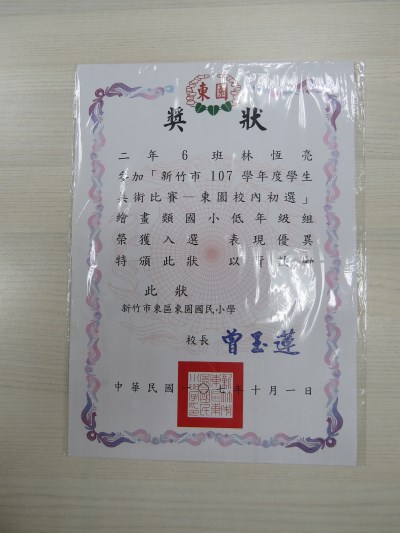 東園
獎狀
二年6班林恆亮
參加「新竹市107學年度學生
美術比賽—東園校內初選」
繪畫類國小低年級組
榮獲入選 表現優異
特頒此狀 以資
此狀
新竹市東區東園國民小學
校長 曾玉蓮
中華民國一〇七年十月一日